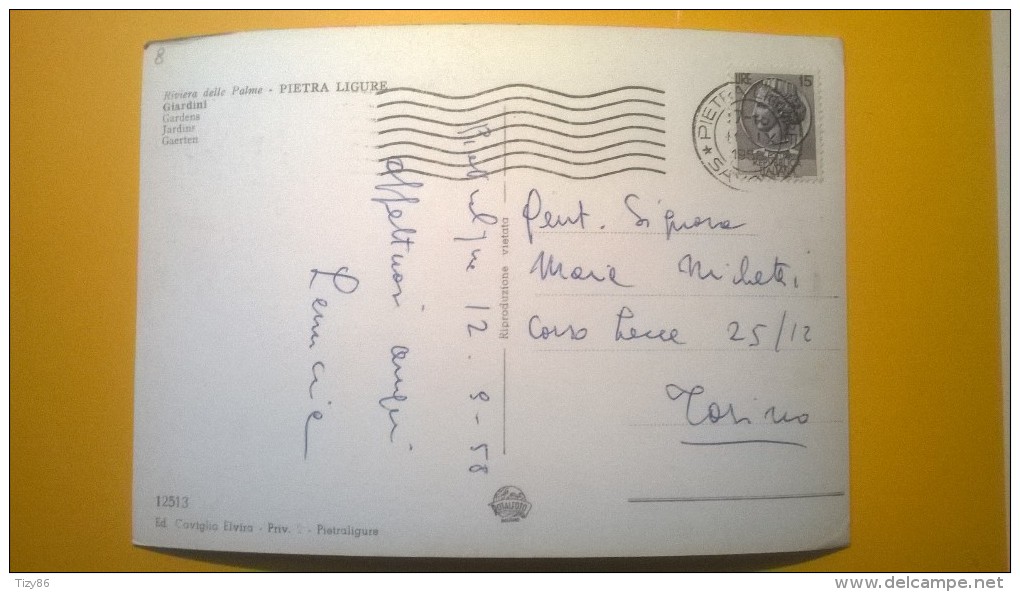 8
Riviera delle Palme - PIETRA LIGURE
Giardini
Gardens
Jardins
Gaerten
LIRE 15
PIETRA
Pietraligure 12-9-58
affettuosi auguri
Gent. Signora
Maria Micheletti
Corso Lecce 25/12
Torino
Riproduzione vietata
12513
Ed. Caviglia Elvira - Priv. - Pietraligure
Tizy86
www.delcampe.net